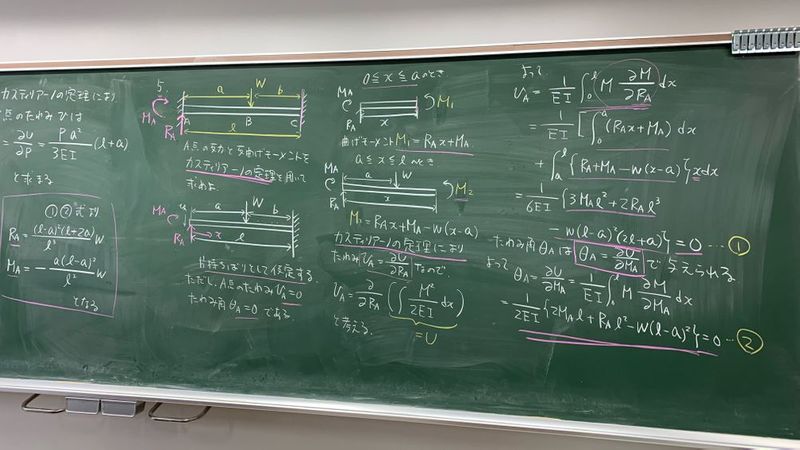 カスティリアーノの定理により
点のたわみひは
= ∂U/∂P = Pa²/3EI (l+a)
と求まる
①②式より
R_A = (l-a)²(l+2a)/l³ W
M_A = - a(l-a)²/l² W
となる
5.
a W b
M_A
R_A A B C
l
A点の反力と反曲げモーメントを
カスティリアーノの定理を用いて
求めよ
y
a W b
M_A
R_A x
l
片持ちばりとして仮定する
ただし、A点のたわみ v_A=0
たわみ角 θ_A=0 である
0≦x≦aのとき
M_A M₁
R_A x
曲げモーメント M₁=R_A x+M_A
a≦x≦lのとき
a W
M_A M₂
R_A x
M₂=R_A x+M_A-W(x-a)
カスティリアーノの定理により
たわみ v_A=∂U/∂R_A なので、
v_A = ∂/∂R_A (∫ M²/2EI dx)
=U
と考える。
よって
v_A = 1/EI ∫₀ˡ M ∂M/∂R_A dx
= 1/EI [∫₀ᵃ (R_A x+M_A) dx
+ ∫ₐˡ {R_A+M_A-W(x-a)} x dx
= 1/6EI {3M_A l²+2R_A l³
- W(l-a)²(2l+a)} = 0 … ①
たわみ角θ_Aは θ_A=∂U/∂M_A で与えられる
よって
θ_A = ∂U/∂M_A = 1/EI ∫₀ˡ M ∂M/∂M_A dx
= 1/2EI {2M_A l+R_A l²-W(l-a)²} = 0 … ②